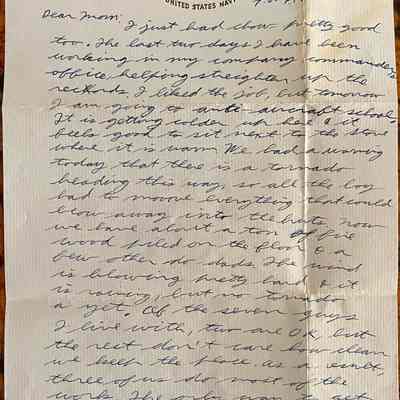 UNITED STATES NAVY
Dear Mom:
I just had chow pretty good
too. The last two days I have been
working in my company commanders
office, helping streighter up the
reckords. I liked the job, but tomorrow
I am going to anti-aircraft school.
It is getting colder up here & it
feels good to sit next to the stove
where it is warm. We had a warning
today that there is a tornado
heading this way, so all the
had to moove everything that could
blow away into the huts now
we have about a ton of fire
wood piled on the floor & a
few other do dads. The wind
is blowing pretty hard & it
is raining, but no tornado
a yet. Of the seven guys
I live with, two are OK, but
the rest don't care how clean
we keep the place, as a result,
three of us do most of the
work. The only way to get